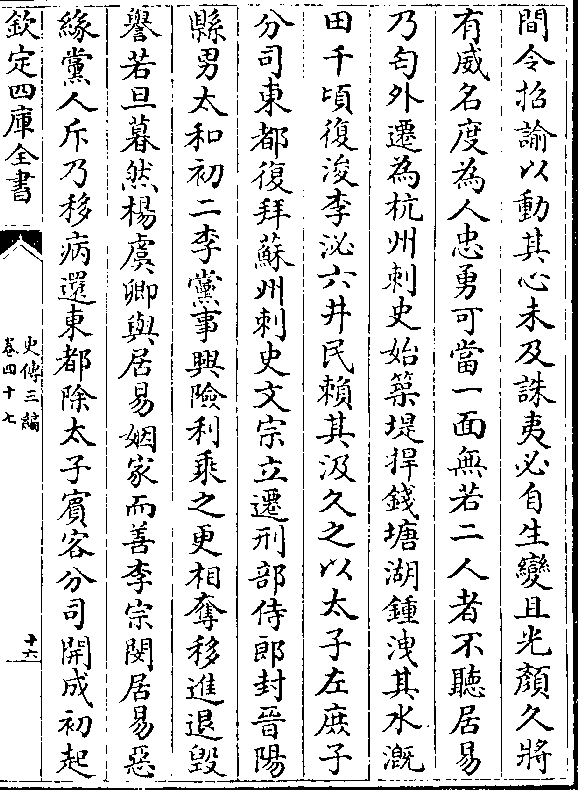 間令招諭以動其心未及誅夷必自生變且光顔久將
有威名度為人忠勇可當一面無若二人者不聽居易
乃匄外遷為杭州刺史始築堤捍錢塘湖鍾洩其水溉
田千頃復浚李泌六井民賴其汲久之以太子左庶子
分司東都復拜蘇州刺史文宗立遷刑部侍郎封晉陽
縣男太和初二李黨事興險利乘之更相奪移進退毀
譽若旦暮然楊虞卿與居易姻家而善李宗閔居易惡
緣黨人斥乃移病還東都除太子賓客分司開成初起
欽定四庫全書
史傳三編
卷四十七
十六